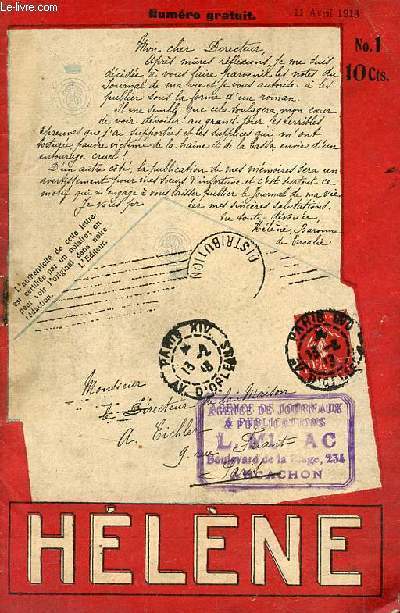 Numéro gratuit.
11 Avril 1914
No. 1
10 Cts.
Mon cher Directeur,
Après mûres réflexions, je me suis
décidée à vous faire parvenir les notes du
Journal de ma vie et je vous autorise à les
publier sous la forme d'un roman.
et me semble que cela soulagera mon cœur
de voir dévoiler au grand jour les terribles
épreuves que j'ai supportées et les supplices qui m'ont
pauvre victime de la haine et de la basse envie d'un
entourage cruel!
D'un autre côté, la publication de mes mémoires sera un
avertissement pour mes sœurs d'infortune et c'est surtout ce
motif qui m'engage à vous laisser publier le journal de ma vie
Je vous prie mes sincères salutations.
Votre toute dévouée,
Hélène, Baronne
de
L'authenticité de cette lettre
est garantie par un notaire; on
peut voir l'original dans notre
rédaction. L'Editeur.
DISTRIBUTION
PARIS XIV
13
AV. D'ORLEANS
PARIS XIV
Monsieur
le Directeur de la Maison
A. Eichler
9 rue
Paris
AGENCE DE JOURNAUX
& PUBLICATIONS
Boulevard de la Plage, 234
ARCACHON
HÉLÈNE